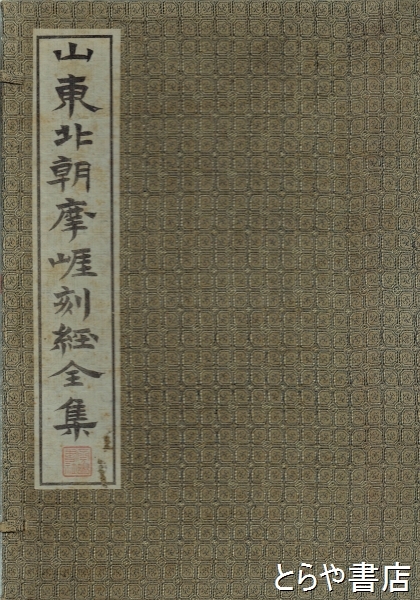 山東北朝摩崖刻経全集
とらや書店